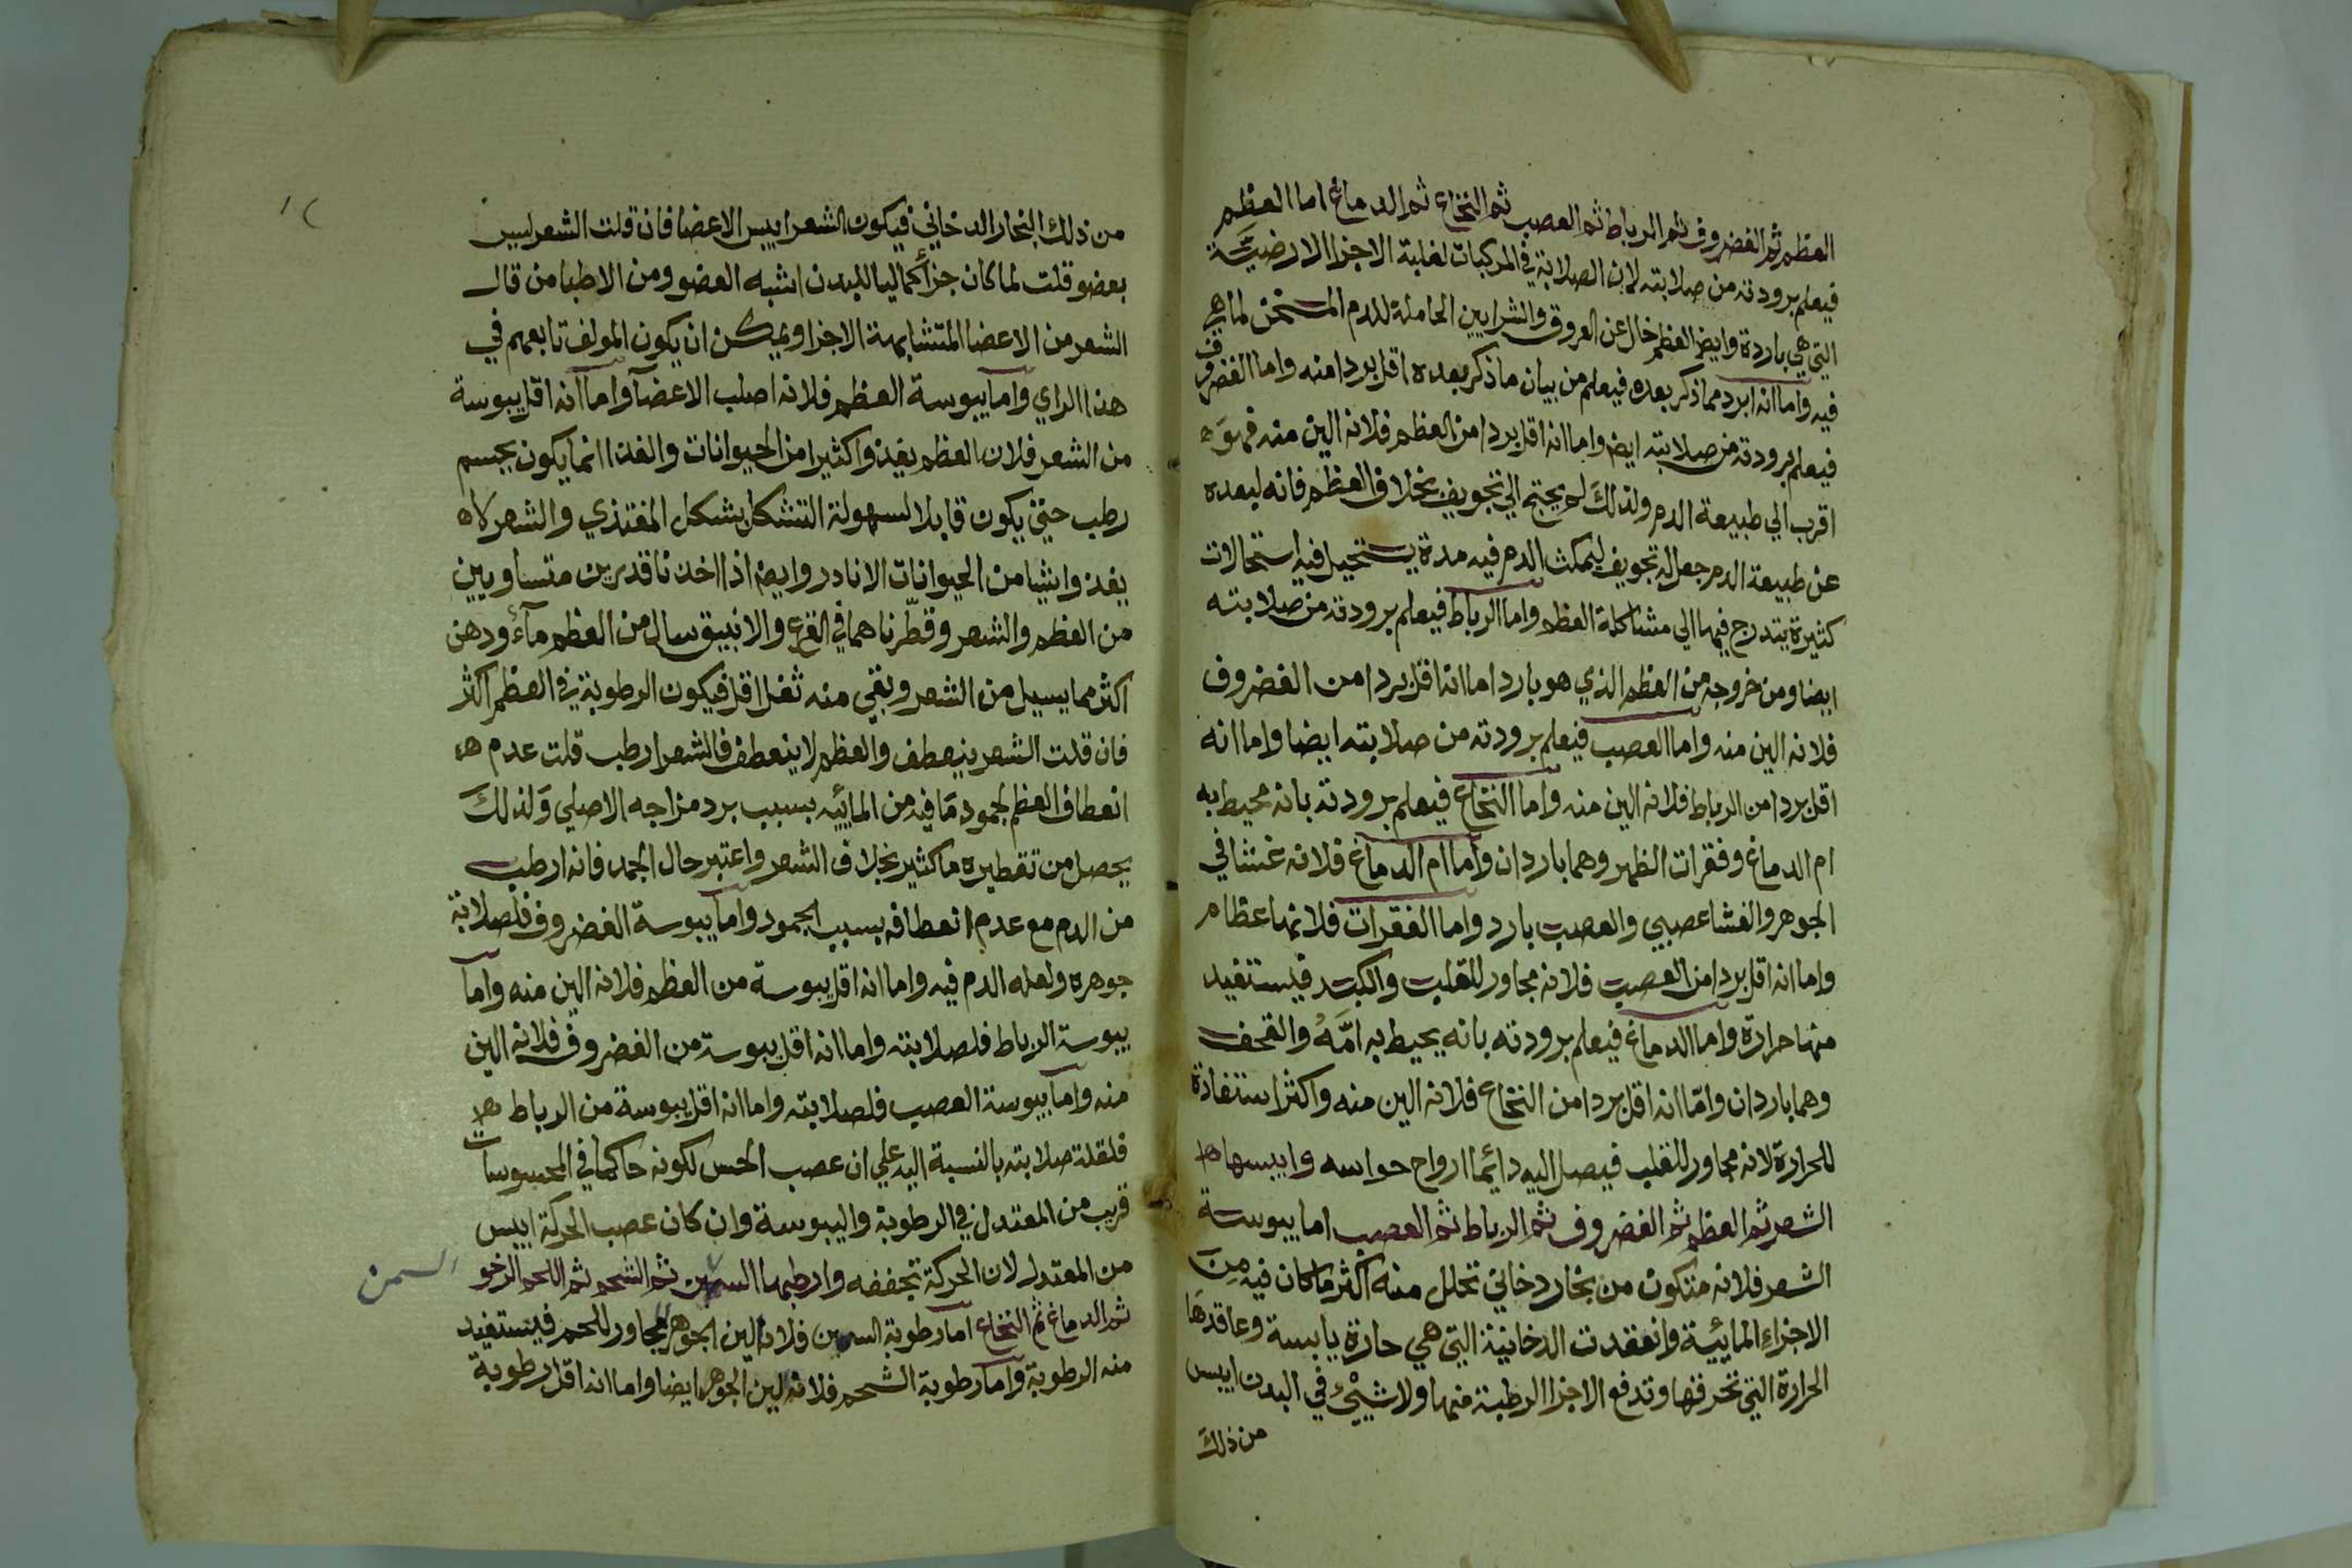 العظم ثم الغضروف ثم الرباط ثم العصب ثم النخاع ثم الدماغ اما العظم
فيعلم برودته من صلابته لان الصلابة في المركبات لغلبة الاجزا الارضيّة
التي هي باردة وايض العظم خال عن العروق والشرايين الحاملة للدم المسخن لما هي
فيه واما انه ابرد مما ذكر بعده فيعلم من بيان ما ذكر بعده اقل بردا منه واما الغضروف
فيعلم برودته من صلابته ايض واما انه اقل بردا من العظم فلانه الين منه فهو
اقرب الي طبيعة الدم ولذلك لم يحتج الي تجويف بخلاف العظم فانه لبعده
عن طبيعة الدم جعل له تجويف ليمكث الدم فيه مدة يستحيل فيه استحالات
كثيرة يتدرج فيها الي مشاكلة العظم واما الرباط فيعلم برودته من صلابته
ايضا ومن خروجه من العظم الذي هو بارد اما انه اقل بردا من الغضروف
فلانه الين منه واما العصب فيعلم برودته من صلابته ايضا واما انه
اقل بردا من الرباط فلانه الين منه واما النخاع فيعلم برودته بانه محيط به
ام الدماغ وفقرات الظهر وهما باردان واما ام الدماغ فلانه غشا في
الجوهر والغشا عصبي والعصب بارد واما الفقرات فلانها عظام
واما انه اقل بردا من العصب فلانه مجاور للقلب والكبد فيستفيد
منها حرارة واما الدماغ فيعلم برودته بانه يحيط به امّهُ والقحف
وهما باردان وامّا انه اقل بردا من النخاع فلانه الين منه واكثر استفادة
للحرارة لانه مجاور للقلب فيصل اليه دائما ارواح حواسه وايبسها
الشعر ثم العظم ثم الغضروف ثم الرباط ثم العصب اما يبوسة
الشعر فلانه متكون من بخار دخاني تحلل منه اكثر ما كان فيه مِن
الاجزاء المائيّة وانعقدت الدخانية التي هي حارة يابسة وعاقدها
الحرارة التي تحرقها وتدفع الاجزا الرطبة منها ولا شيْئ في البدن ايبس
من ذلك
من ذلك البخار الدخاني فيكون الشعر ايبس الاعضا فان قلت الشعر ليس
بعضو قلت لما كان جزأ كماليا للبدن اشبه العضو ومن الاطبا من قال
الشعر من الاعضا المتشابهة الاجزا ويمكن ان يكون المولف تابعهم في
هذا الراي واما يبوسة العظم فلانه اصلب الاعضآ واما انه اقل يبوسة
من الشعر فلان العظم يغذوا كثيرا من الحيوانات والغذا انما يكون بجسم
رطب حتي يكون قابلا لسهولة التشكل بشكل المغتذي والشعر لا
يغذوا شيا من الحيوانات الا نادر وايض اذا اخذنا قدرين متساويين
من العظم والشعر وقطّرناهما في القرع والانبيق سال من العظم مآء ودهن
اكثر مما يسيل من الشعر وبقي منه ثفل اقل فيكون الرطوبة في العظم اكثر
فان قلت الشعر ينعطف والعظم لا ينعطف فالشعر ارطب قلت عدم
انعطاف العظم لجمود ما فيه من المائيه بسبب برد مزاجه الاصلي ولذلك
يحصل من تقطيره ما كثير بخلاف الشعر واعتبر حال الجمد فانه ارطب
من الدم مع عدم انعطافه بسبب الجمود واما يبوسة الغضروف فلصلابة
جوهره ولعله الدم فيه واما انه اقل يبوسة من العظم فلانه الين منه واما
يبوسة الرباط فلصلابته واما انه اقل يبوسة من الغضروف فلانه الين
منه واما يبوسة العصب فلصلابته واما انه اقل يبوسة من الرباط
فلقلة صلابته بالنسبة اليه علي ان عصب الحس لكونه حاكما في المحسوسات
قريب من المعتدل في الرطوبة واليبوسة وان كان عصب الحركة ايبس
من المعتدل لان الحركة تجففه وارطبها السمين ثم الشحم ثم اللحم الرخو
السمن
ثم الدماغ ثم النخاع اما رطوبة السمين فلانه لين الجوهر مجاور للحم فيستفيد
منه الرطوبة واما رطوبة الشحم فلانه لين الجوهر ايضا واما انه اقل رطوبة